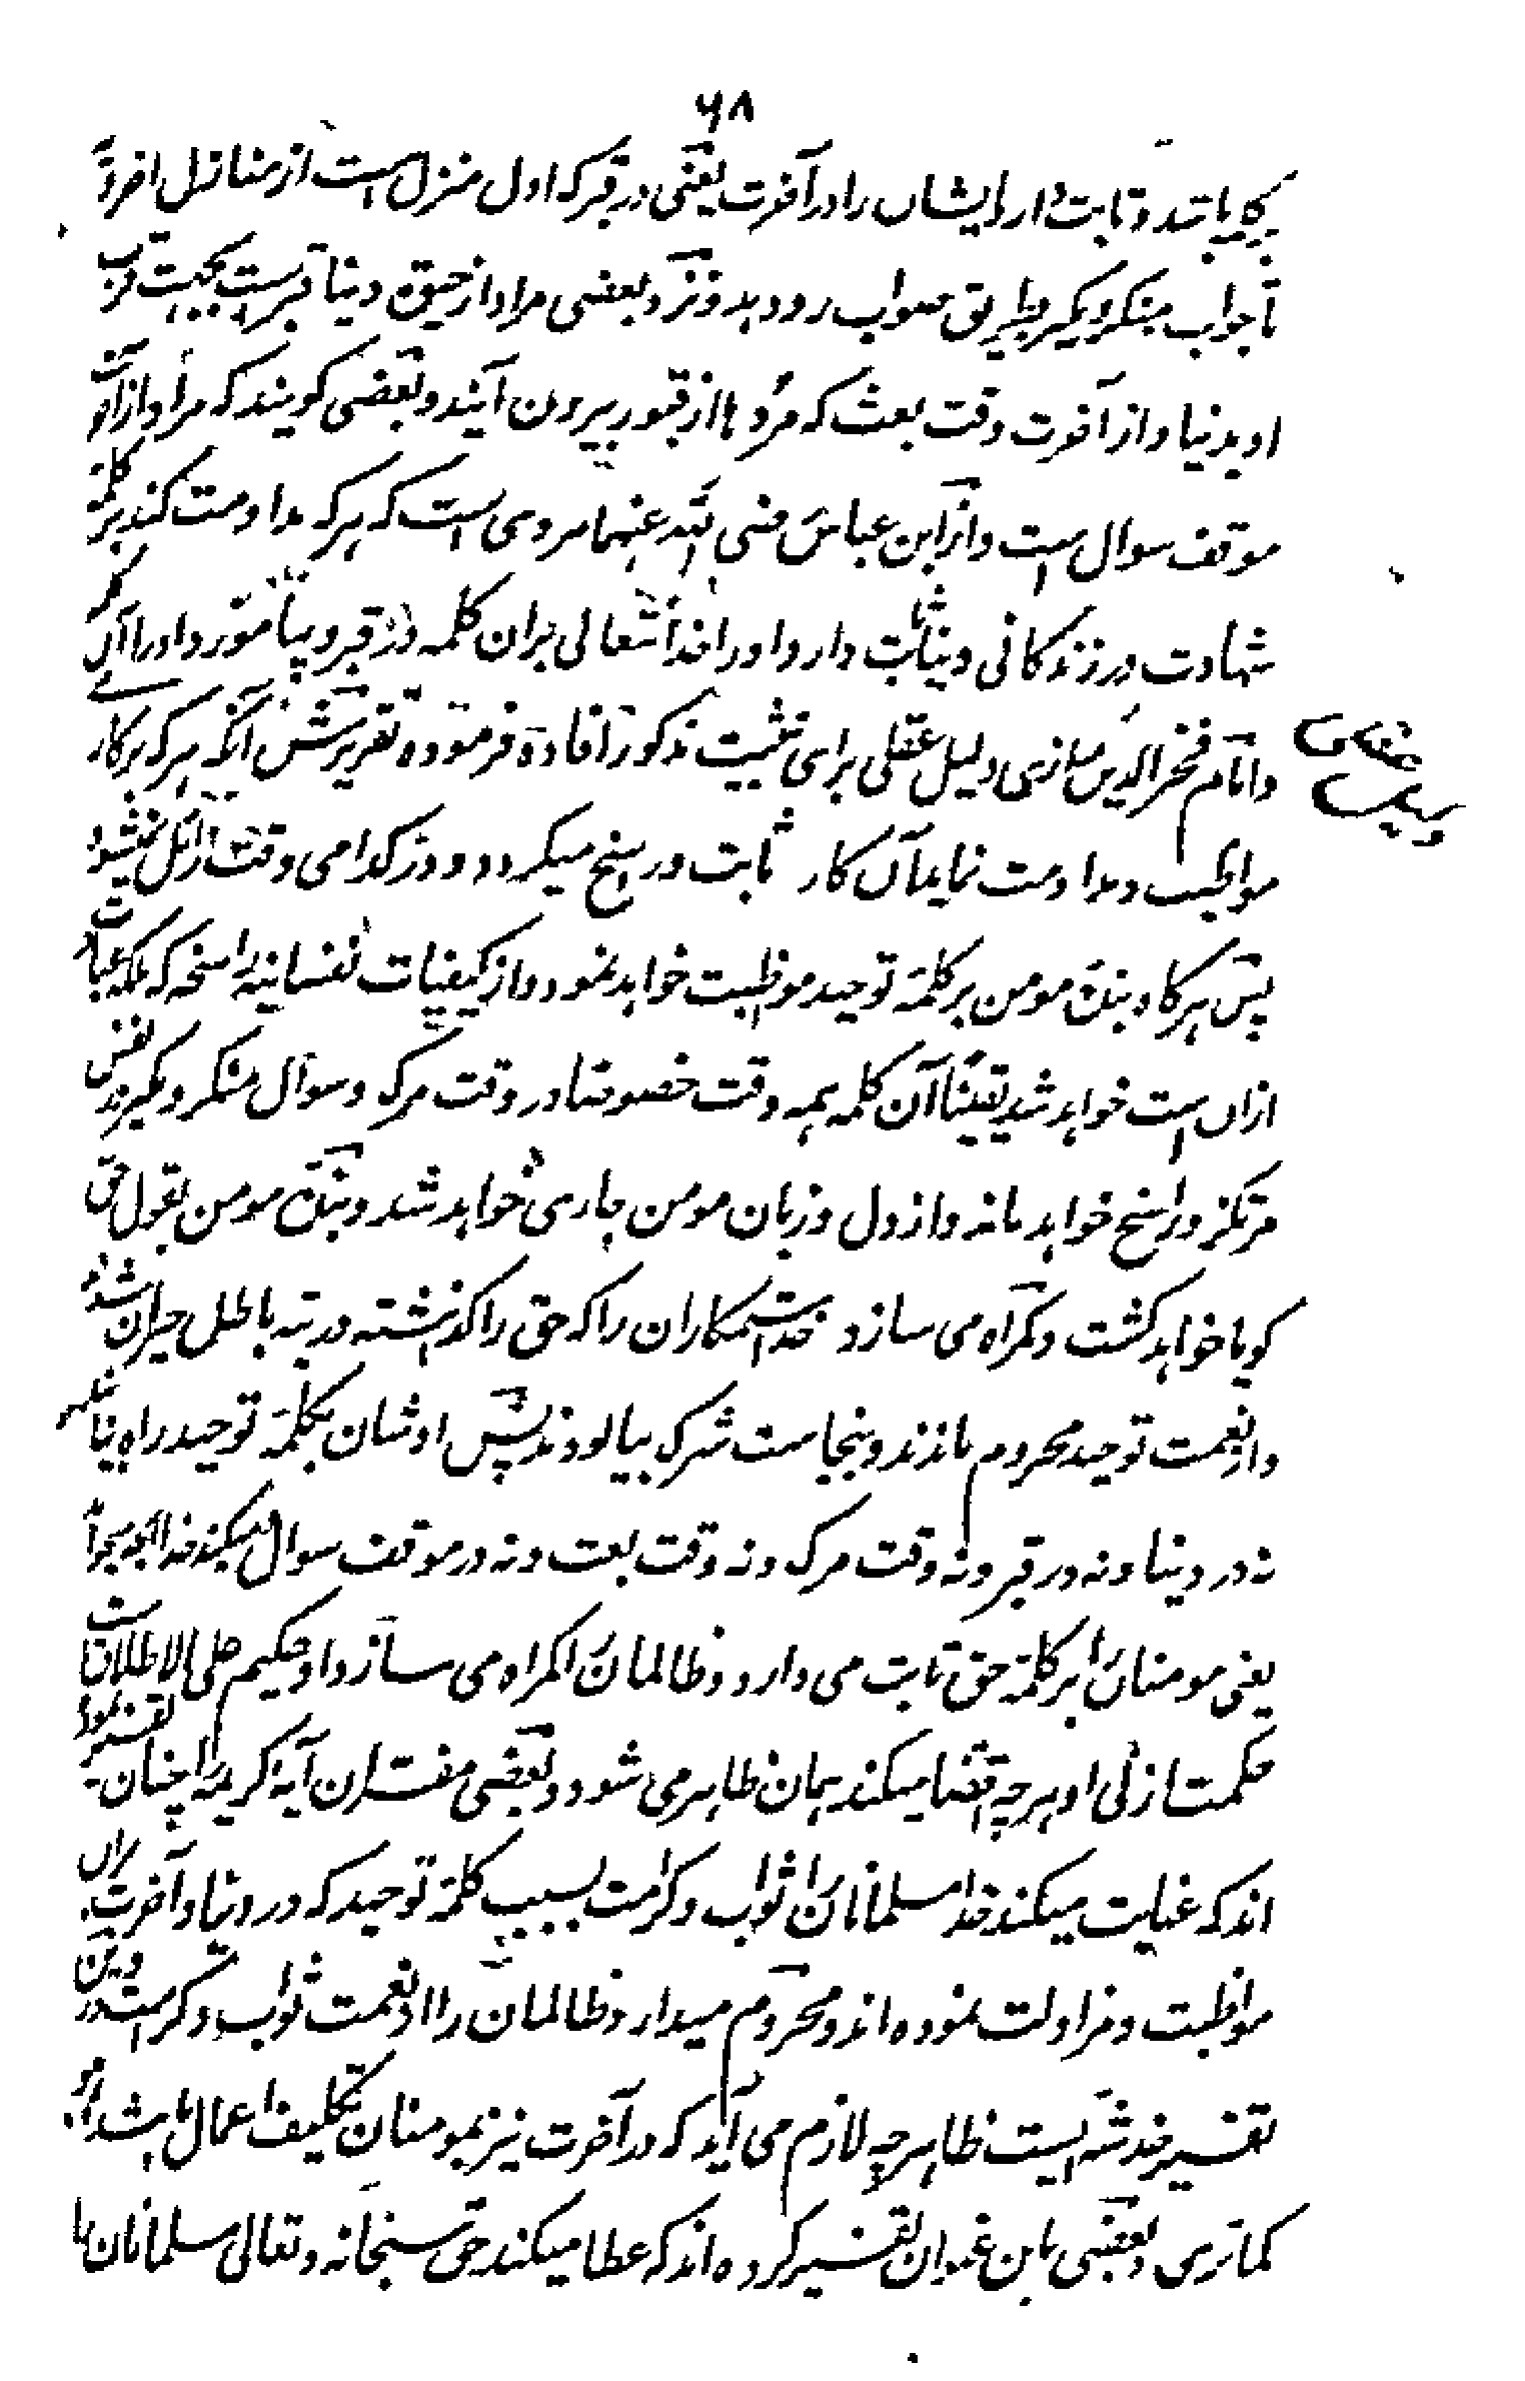 ۶۸
باشد و ثابت دارد ایشان را در آخرت یعنی در قبر که اول منزل است از منازل اخروی
تا جواب منکر و نکیر بطریق صواب رو دهد و نزد بعضی مراد از حیوة دنیا قبر است بجهت قرب
او بدنیا و از آخرت وقت بعث که مرده‌ها از قبور بیرون آیند و بعضی گویند که مراد از آخرت
موقف سوال است و از ابن عباس رضی الله عنهما مروی است که هر که مداومت کند بر کلمۀ
شهادت در زندگانی دنیا ثابت دارد او را خدا تعالی بران کلمه در قبر و بیاموزد او را آن
و امام فخر الدین رازی دلیل عقلی برای تثبیت مذکور افاده فرموده تقریرش آنکه هر که بر کار
مواظبت و مداومت نماید آن کار ثابت و راسخ میگردد و در کدامی وقت زائل نمیشود
پس هرگاه بندۀ مومن بر کلمۀ توحید مواظبت خواهد نمود و از کیفیات نفسانیه راسخه که ملکه عبارت
ازان است خواهد شد یقیناً آن کلمه همه وقت خصوصا در وقت مرگ و سوال منکر و نکیر در نفس
مرتکز و راسخ خواهد ماند و از دل و زبان مومن جاری خواهد شد و بندۀ مومن بقول حق
گویا خواهد گشت و گمراه می سازد خدا ستمکاران را که حق را گذاشته در تیه باطل حیران شدند
و از نعمت توحید محروم ماندند و بنجاست شرک بیالودند پس اوشان بکلمۀ توحید راه نیابند
نه در دنیا و نه در قبر و نه وقت مرگ و نه وقت بعث و نه در موقف سوال میکند خدا آنچه میخواهد
یعنی مومنان را بر کلمۀ حق ثابت می دارد و ظالمان را گمراه می سازد او حکیم علی الاطلاق است
حکمت ازلی او هر چه اقتضا میکند همان ظاهر می شود و بعضی مفسران آیۀ کریمه را چنان تفسیر نموده
اند که عنایت میکند خدا مسلمانان را ثواب و کرامت بسبب کلمۀ توحید که در دنیا و آخرت بران
مواظبت و مزاولت نموده اند و محروم میدارد ظالمان را از نعمت ثواب و کرامت و درین
تفسیر خدشه ایست ظاهر چه لازم می آید که در آخرت نیز بمومنان تکلیف اعمال باشد
کماتری و بعضی باین عنوان تفسیر کرده اند که عطا میکند حق سبحانه و تعالی مسلمانان را